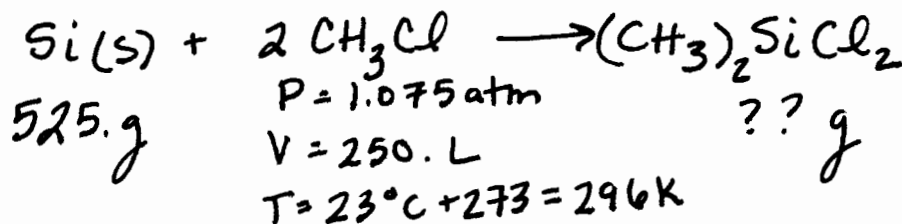 Si(s) + 2 CH₃Cl ⟶ (CH₃)₂SiCl₂
525. g P = 1.075 atm ?? g
V = 250. L
T = 23°C + 273 = 296K